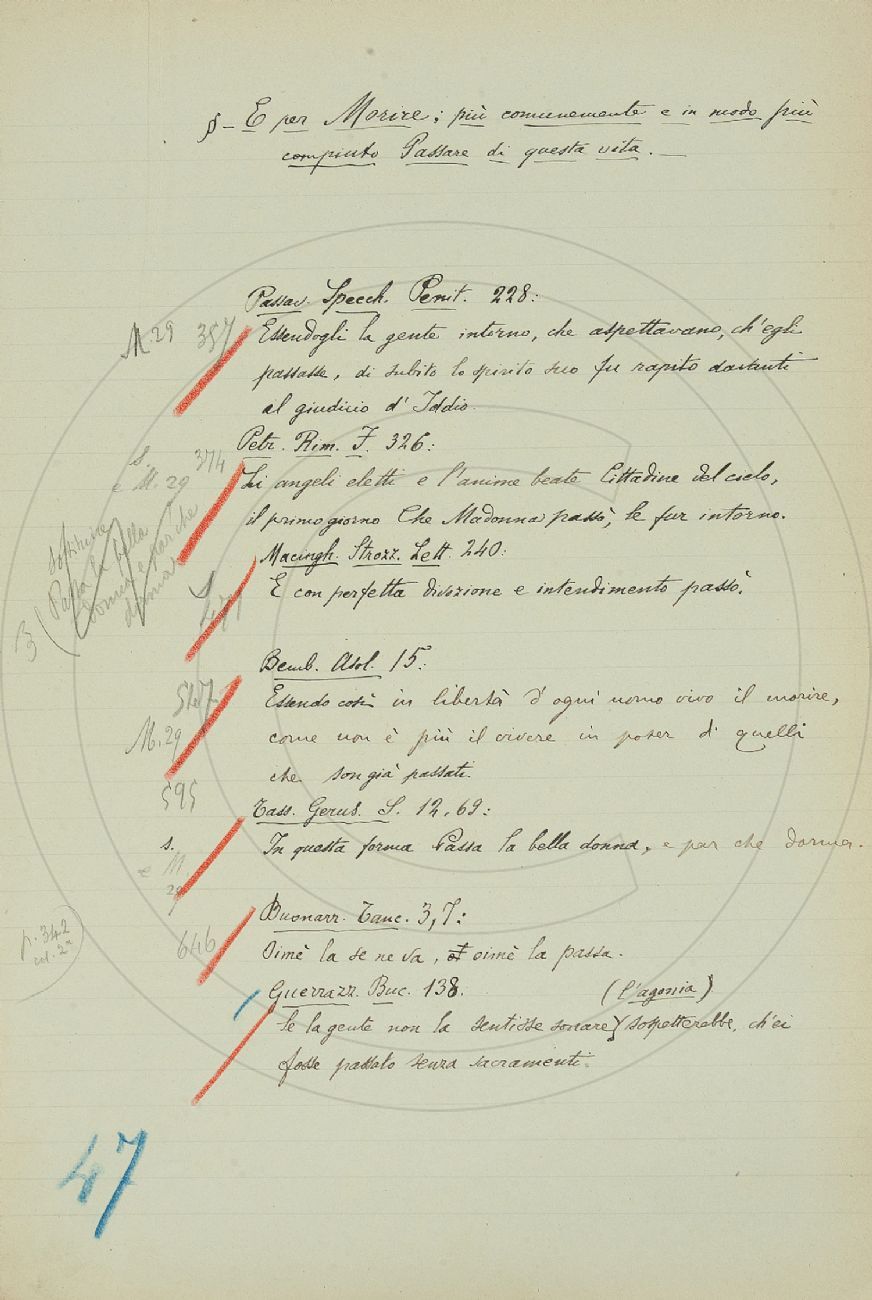 § - E per Morire; più comunemente e in modo più
compiuto Passare di questa vita. —
Passav. Specch. Penit. 228:
M. 29 357 Essendogli la gente intorno, che aspettavano, ch'egli
passasse, di subito lo spirito suo fu rapito davanti
al giudicio d'Iddio.
Petr. Rim. I. 326:
s. 374
e M. 29 Li angeli eletti e l'anime beate Cittadine del cielo,
il primo giorno Che Madonna passò, le fur intorno.
3 (Passa la bella
donna e par che
dorma
Macingh. Strozz. Lett. 240:
E con perfetta divozione e intendimento passò.
Bemb. Asol. 15:
Essendo così in libertà d'ogni uomo vivo il morire,
M. 29 come non è più il vivere in poter di quelli
che son già passati.
595 Tass. Gerus. S. 12, 69:
s. In questa forma Passa la bella donna, e par che dorma.
e M.
29
Buonarr. Tanc. 3, 7:
p. 342
col. 2ª
646 Oimè la se ne va, oimè la passa.
Guerrazz. Buc. 138. (l'agonia)
Se la gente non la sentisse sonare} sospetterebbe, ch'ei
fosse passato senza sacramenti.
47